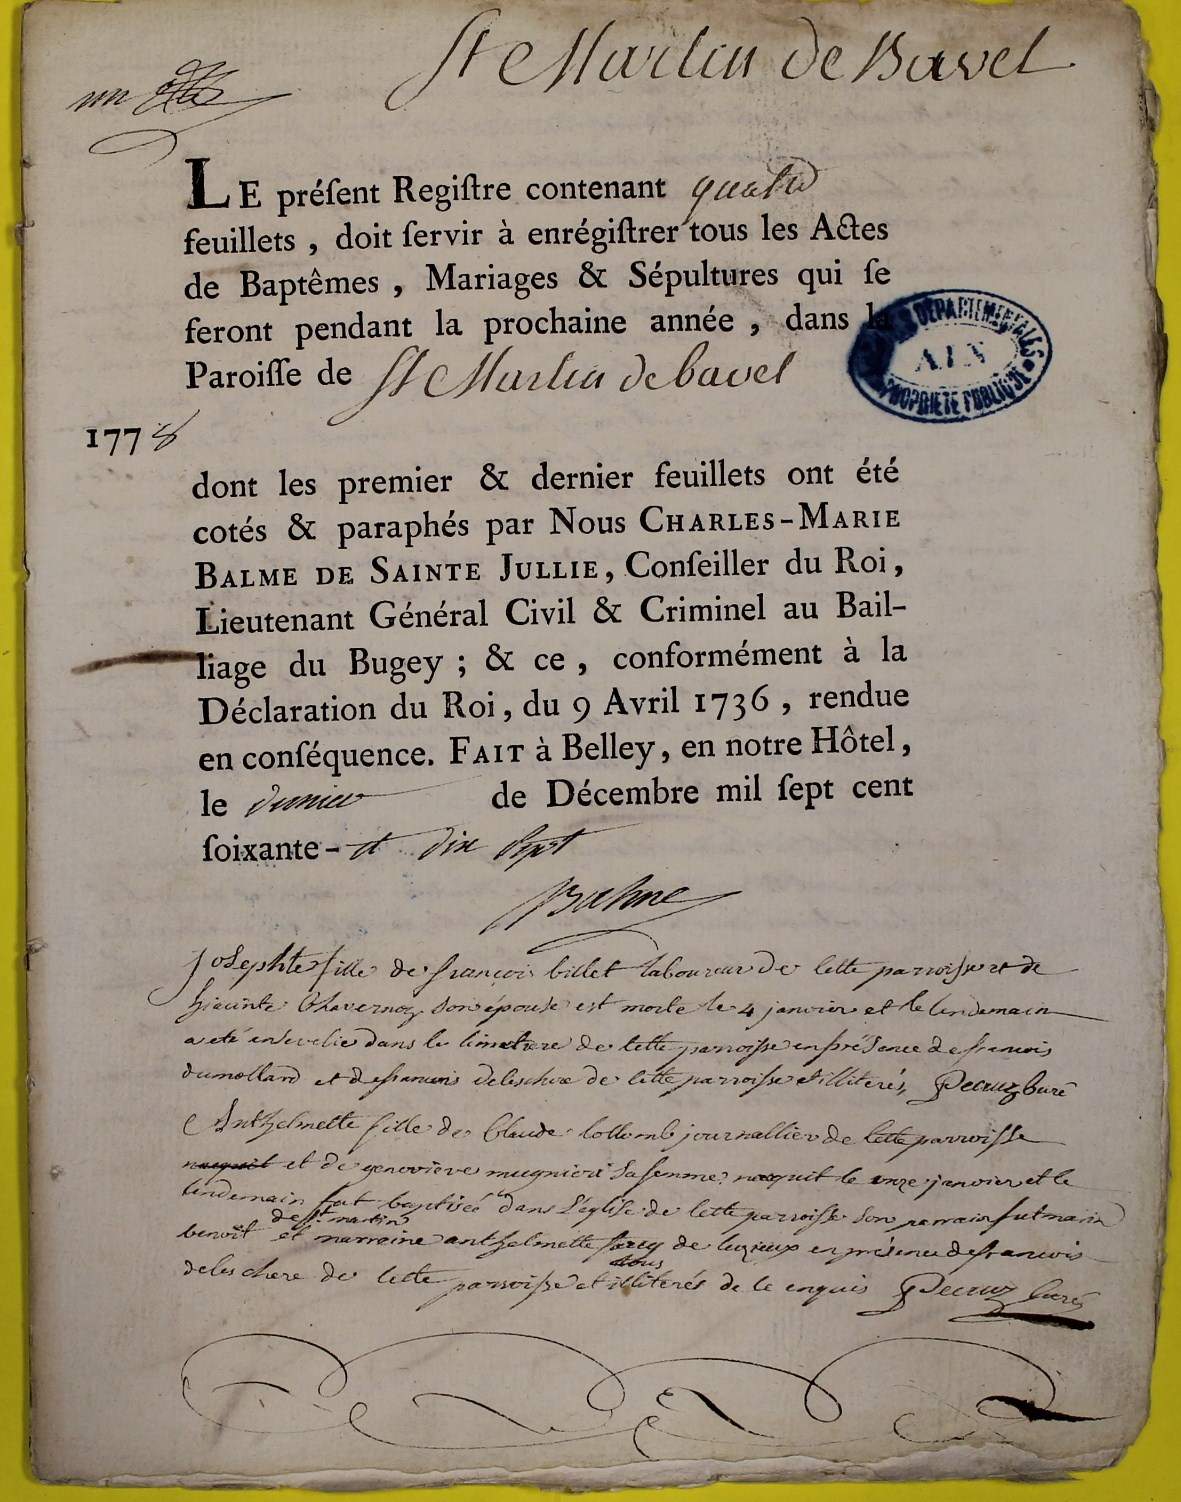 St Martin de Bavel
un
LE préſent Regiſtre contenant quatre
feuillets, doit ſervir à enrégiſtrer tous les Actes
de Baptêmes, Mariages & Sépultures qui ſe
feront pendant la prochaine année, dans la
Paroiſſe de St Martin de bavel
DEPARTEMENTALES
AIN
PROPRIETE PUBLIQUE
1778
dont les premier & dernier feuillets ont été
cotés & paraphés par Nous CHARLES-MARIE
BALME DE SAINTE JULLIE, Conſeiller du Roi,
Lieutenant Général Civil & Criminel au Bail-
liage du Bugey ; & ce, conformément à la
Déclaration du Roi, du 9 Avril 1736, rendue
en conſéquence. FAIT à Belley, en notre Hôtel,
le dernier de Décembre mil ſept cent
ſoixante-et dix sept
Balme
Josephte fille de françois billet laboureur de cette parroisse et de
hiacinte Chavernoz son épouse est morte le 4 janvier et le lendemain
a eté ensevelie dans le cimetiere de cette parroisse en présence de francois
dumollard et de francois deleschere de cette parroisse illiterés, Decruz Curé
Anthelmette fille de Claude Collomb journallier de cette parroisse
naquit et de genovieve mugnier sa femme naquit le onze janvier et le
lendemain fut baptisée dans l'église de cette parroisse son parrain fut marin
de st martin
benoit et marraine anthelmette de luzieux en présence de francois
tous
deleschere de cette parroisse et illiterés de ce enquis Decruz Curé